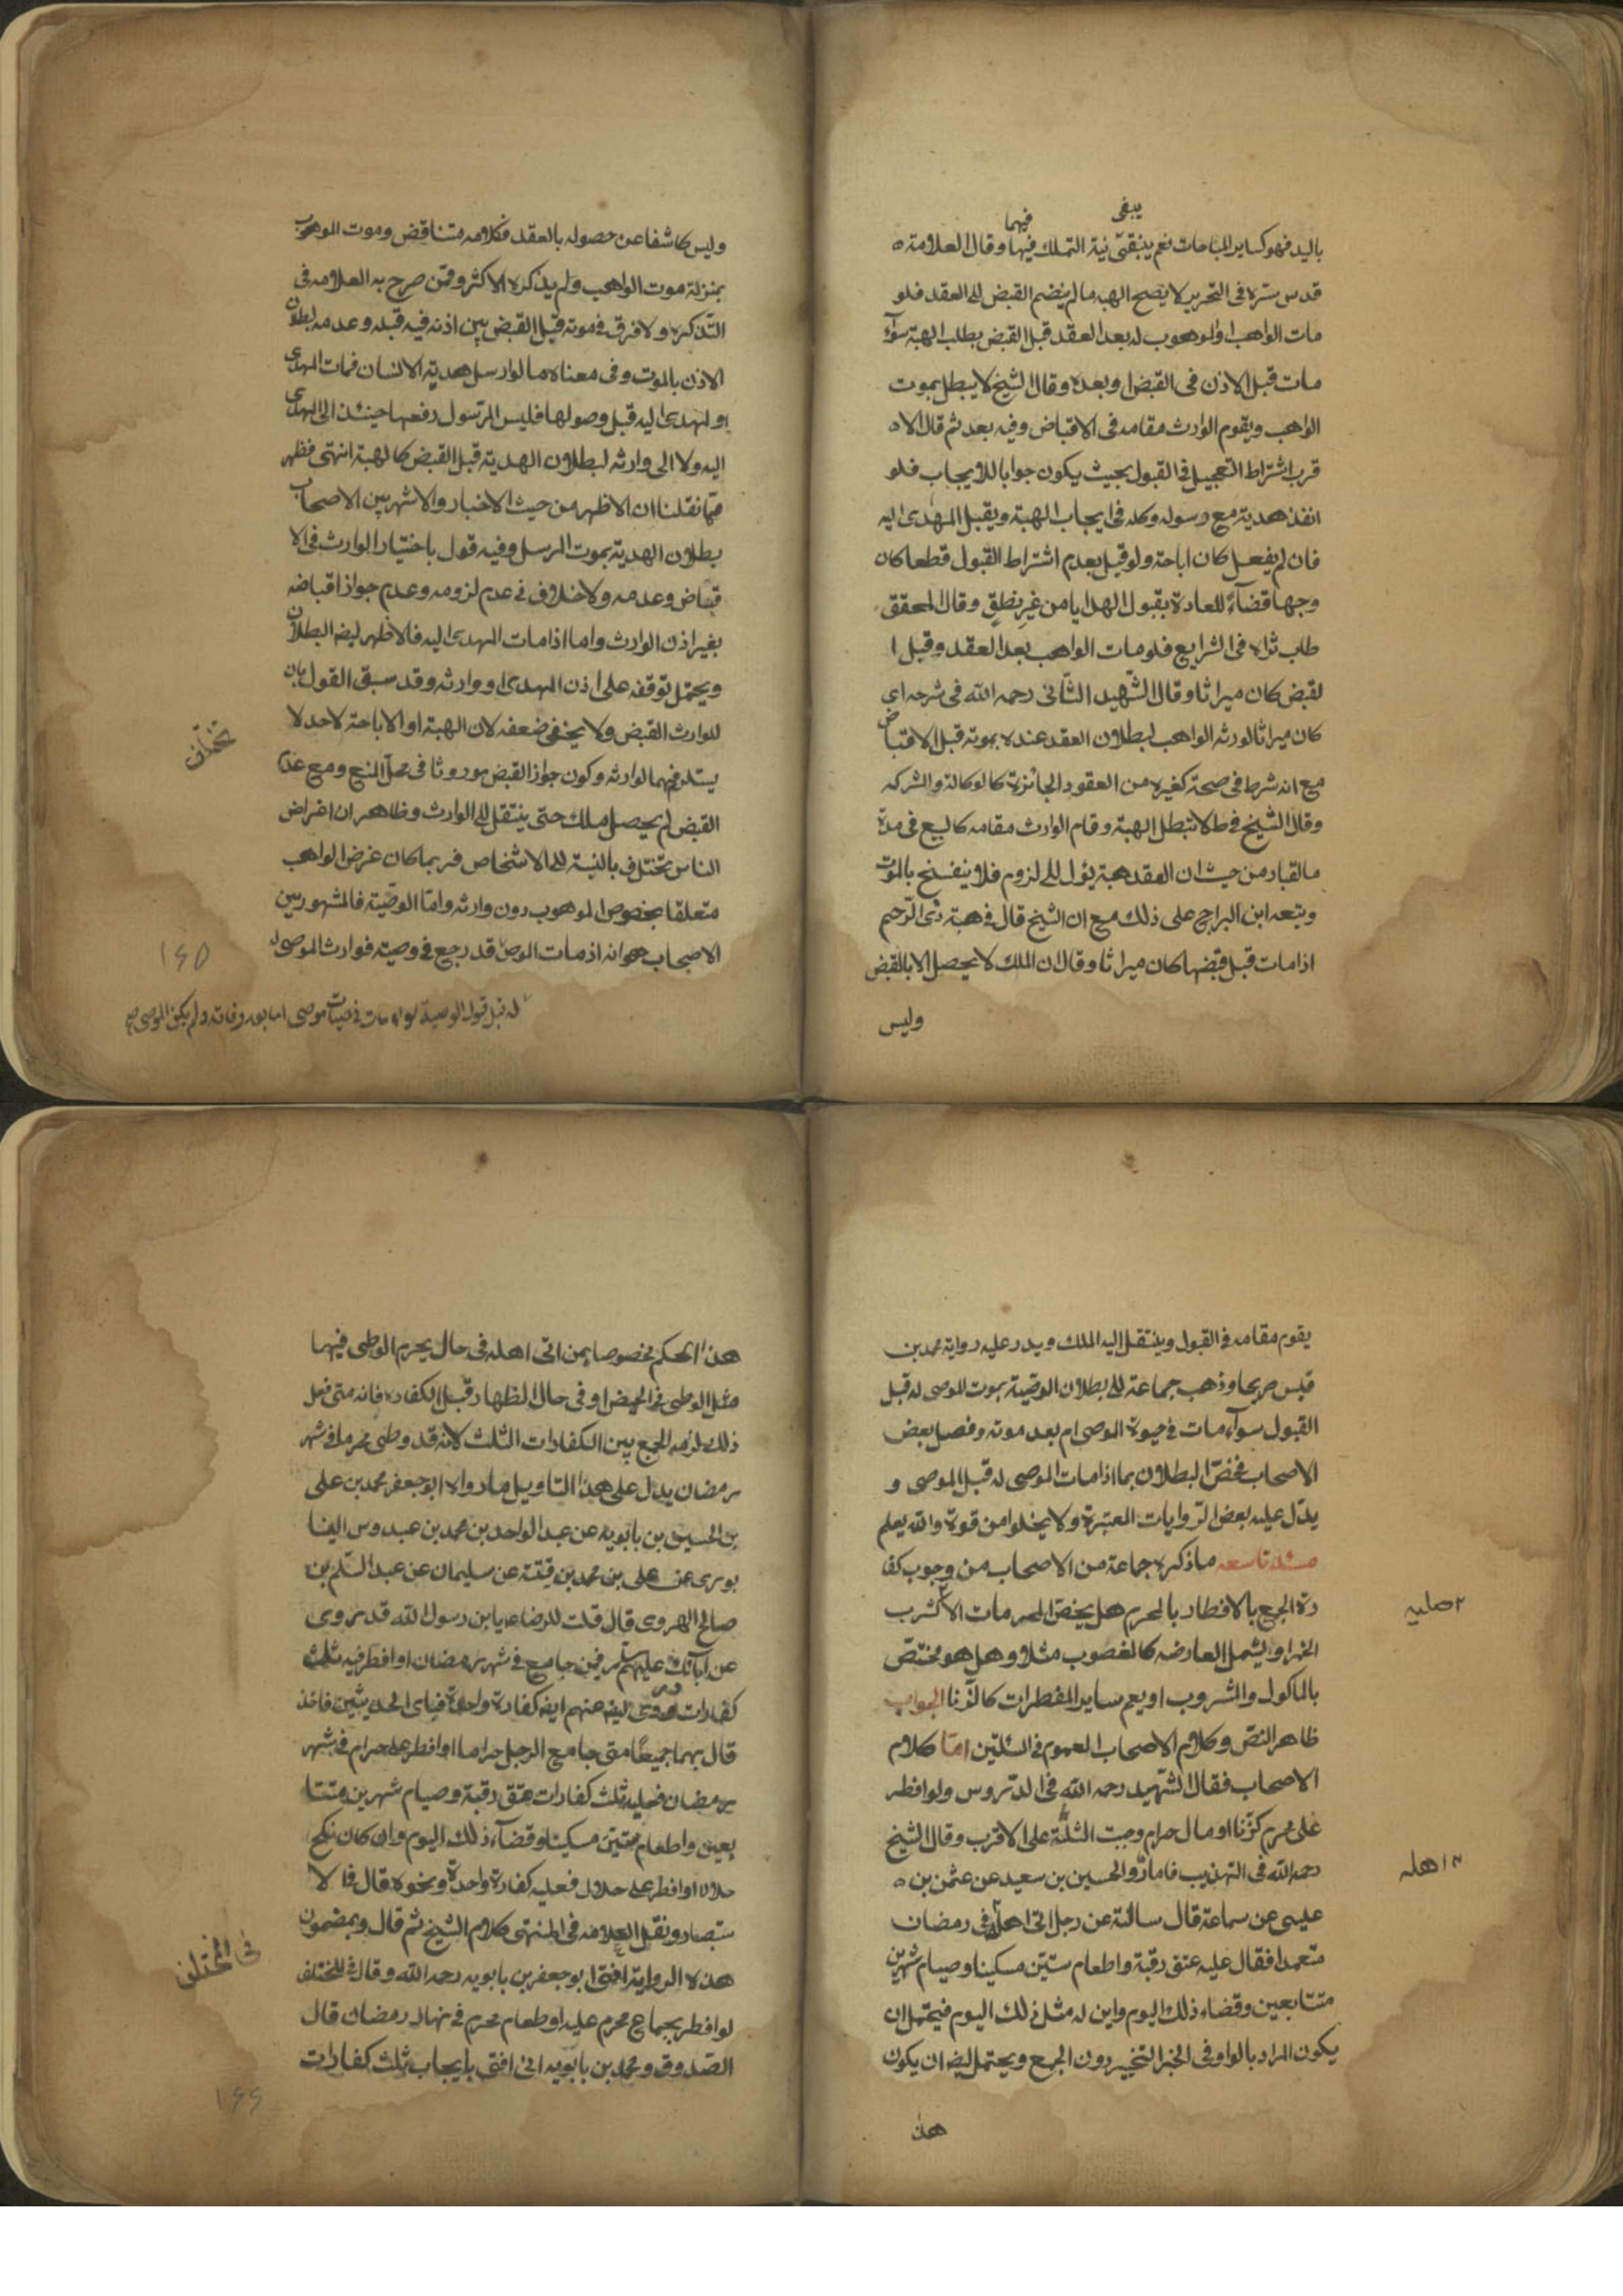 يبقى فيها
باليد فهو كساير المباحات نعم ينبغى نية التملك فيها وقال العلامة ه
قدس سره فى التحرير لا يصح الهبه مالم ينضم القبض الى العقد فلو
مات الواهب او الموهوب له بعد العقد قبل القبض بطلب الهبة سوآء
مات قبل الاذن فى القبض او بعده وقال الشيخ لا يبطل بموت
الواهب ويقوم الوارث مقامه فى الاقباض وفيه بعد ثم قال الاه
قرب اشتراط التعجيل فى القبول بحيث يكون جوابا للايجاب فلو
انفذ هدية مع رسوله وكله فى ايجاب الهبة ويقبل المهدى اليه
فان لم يفعل كان اباحة ولو قيل بعدم اشتراط القبول قطعا كان
وجها قضآءً للعادة بقبول الهدايا من غير نطق وقال المحقق
طاب ثراه فى الشرايع فلو مات الواهب بعد العقد وقبل ا
لقبض كان ميراثا وقال الشهيد الثانى رحمه الله فى شرحه اى
كان ميراثا لورثه الواهب لبطلان العقد عنده بموته قبل الاقباض
مع انه شرط فى صحته كغيره من العقود الجائزة كالوكالة والشركه
وقال الشيخ فى ط لا تبطل الهبة وقام الوارث مقامه كالبيع فى مدة
مالقباد من حيث ان العقد هبة يؤل الى لزوم فلا ينفسخ بالموت
وتبعه ابن البراج على ذلك مع ان الشيخ قال فى هبة ذى الرحيم
اذا مات قبل قبضها كان ميراثا وقال ان الملك لا يحصل الا بالقبض
وليس
وليس كاشفا عن حصوله بالعقد فكلامه متناقض وموت الموهوب
بمنزلة موت الواهب ولم يذكره الاكثر وممن صرح به العلامه فى
التذكره ولا فرق فى موته قبل القبض بين اذنه فيه قبله وعدمه لبطلان
الاذن بالموت وفى معناه ما لو ارسل هدية الانسان فمات المهدى
او المهدى اليه قبل وصولها فليس المرسول دفعها حينئذ الى المهدى
اليه ولا الى وارثه لبطلان الهدية قبل القبض كالهبة انتهى فظهر
مما نقلنا ان الاظهر من حيث الاخبار والاشهر بين الاصحاب
بطلان الهدية بموت المرسل وفيه قول باختيار الوارث فى الا
قباض وعدمه ولا خلاف فى عدم لزومه وعدم جواز اقباضه
بغير اذن الوارث واما اذا مات المهدى اليه فالاظهر ايضه البطلان
ويحتمل توقفه على اذن المهدى او وارثه وقد سبق القول بان
للوارث القبض ولا يخفى ضعفه لان الهبة او الاباحة لاحد لا
يستلزمهما لوارثه وكون جواز القبض موروثا فى محل المنع ومع عدم
القبض لم يحصل ملك حتى ينتقل الى الوارث وظاهر ان اغراض
الناس تختلف بالنسبة الى الاشخاص فربما كان غرض الواهب
متعلقا بخصوص الموهوب دون وارثه واما الوصية فالمشهور بين
الاصحاب هو انه اذ مات الموصى قد رجع فى وصيته فوارث الموصى له
تختلف
١٤٥
له قبل قبول الوصية سواء مات فى حيات موصى اما بعد وفاته ولم يكن الموصى
يقوم مقامه فى القبول وينتقل اليه الملك ويدر عليه رواية محمد بن
قيس صريحا وذهب جماعة الى بطلان الوصية بموت الموصى له قبل
القبول سوآء مات فى حيوة الموصى ام بعد موته وفصل بعض
الاصحاب فخص البطلان بما اذا مات الموصى له قبل الموصى و
يدل عليه بعض الروايات المعتبرة ولا يخلوا من قوة والله يعلم
مسئله تاسعه ما ذكره جماعة من الاصحاب من وجوب كفا
رة الجمع بالافطار بالمحرم هل يخص المحرمات الا كشرب
الخمر او يشمل العارضه كالمغصوب مثلا وهل هو مختص
بالماكول والمشروب او يعم ساير المفطرات كالزنا الجواب
ظاهر النص وكلام الاصحاب العموم فى المسئلتين اما كلام
الاصحاب فقال الشهيد رحمه الله فى الدروس ولو افطر
على محرم كزنا او مال حرام وجبت الثلثة على الاقرب وقال الشيخ
رحمه الله فى التهذيب فاما ما رواه الحسين بن سعيد عن عثمن بن ه
عيسى عن سماعة قال سالته عن رجل اتى اهله فى رمضان
متعمدا فقال عليه عتق رقبة واطعام ستين مسكينا وصيام شهرين
متتابعين وقضاء ذلك اليوم واين له مثل ذلك اليوم فيحتمل ان
يكون المراد بالواو فى الخبر التخيير دون الجمع ويحتمل ايضه ان يكون
هذا
٢ صليه
١٢ اهله
هذا الحكم مخصوصا بمن اتى اهله فى حال يحرم الوطى فيها
مثل الوطى فى الحيض او فى حال الظهار قبل الكفاره فانه متى فعل
ذلك لزمه الجمع بين الكفارات الثلث لانه قد وطى محرما فى شهر
رمضان يدل على هذا التاويل ما رواه ابو جعفر محمد بن على
بن الحسين بن بابويه عن عبد الواحد بن محمد بن عبدوس النيشا
بورى عن على بن محمد بن قتيبة عن سليمان عن عبد السلم بن
صالح الهروى قال قلت للرضاء يابن رسول الله قد روى
عن آبائك عليهم سلم فيمن جامع فى شهر رمضان او افطر فيه ثلث
كفارات وروى ايضه عنهم ايضه كفارة واحدة فباى الحديثين فاخذ
قال بهما جميعًا متى جامع الرجل حراما او افطر على حرام فى شهر
رمضان فعليه ثلث كفارات عتق رقبة وصيام شهرين متتا
بعين واطعام ستين مسكينا وقضآء ذلك اليوم وان كان نكح
حلالا او افطر على حلال فعليه كفارة واحدة ونحوه قال فى الا
ستبصار ونقل العلامه فى المنتهى كلام الشيخ ثم قال وبمضمون
هذه الرواية افتى ابو جعفر بن بابويه رحمه الله وقال فى المختلف
لو افطر بجماع محرم عليه او طعام محرم فى نهار رمضان قال
الصدوق ومحمد بن بابويه انى افتى بايجاب ثلث كفارات
فى المختلف
١٤٤